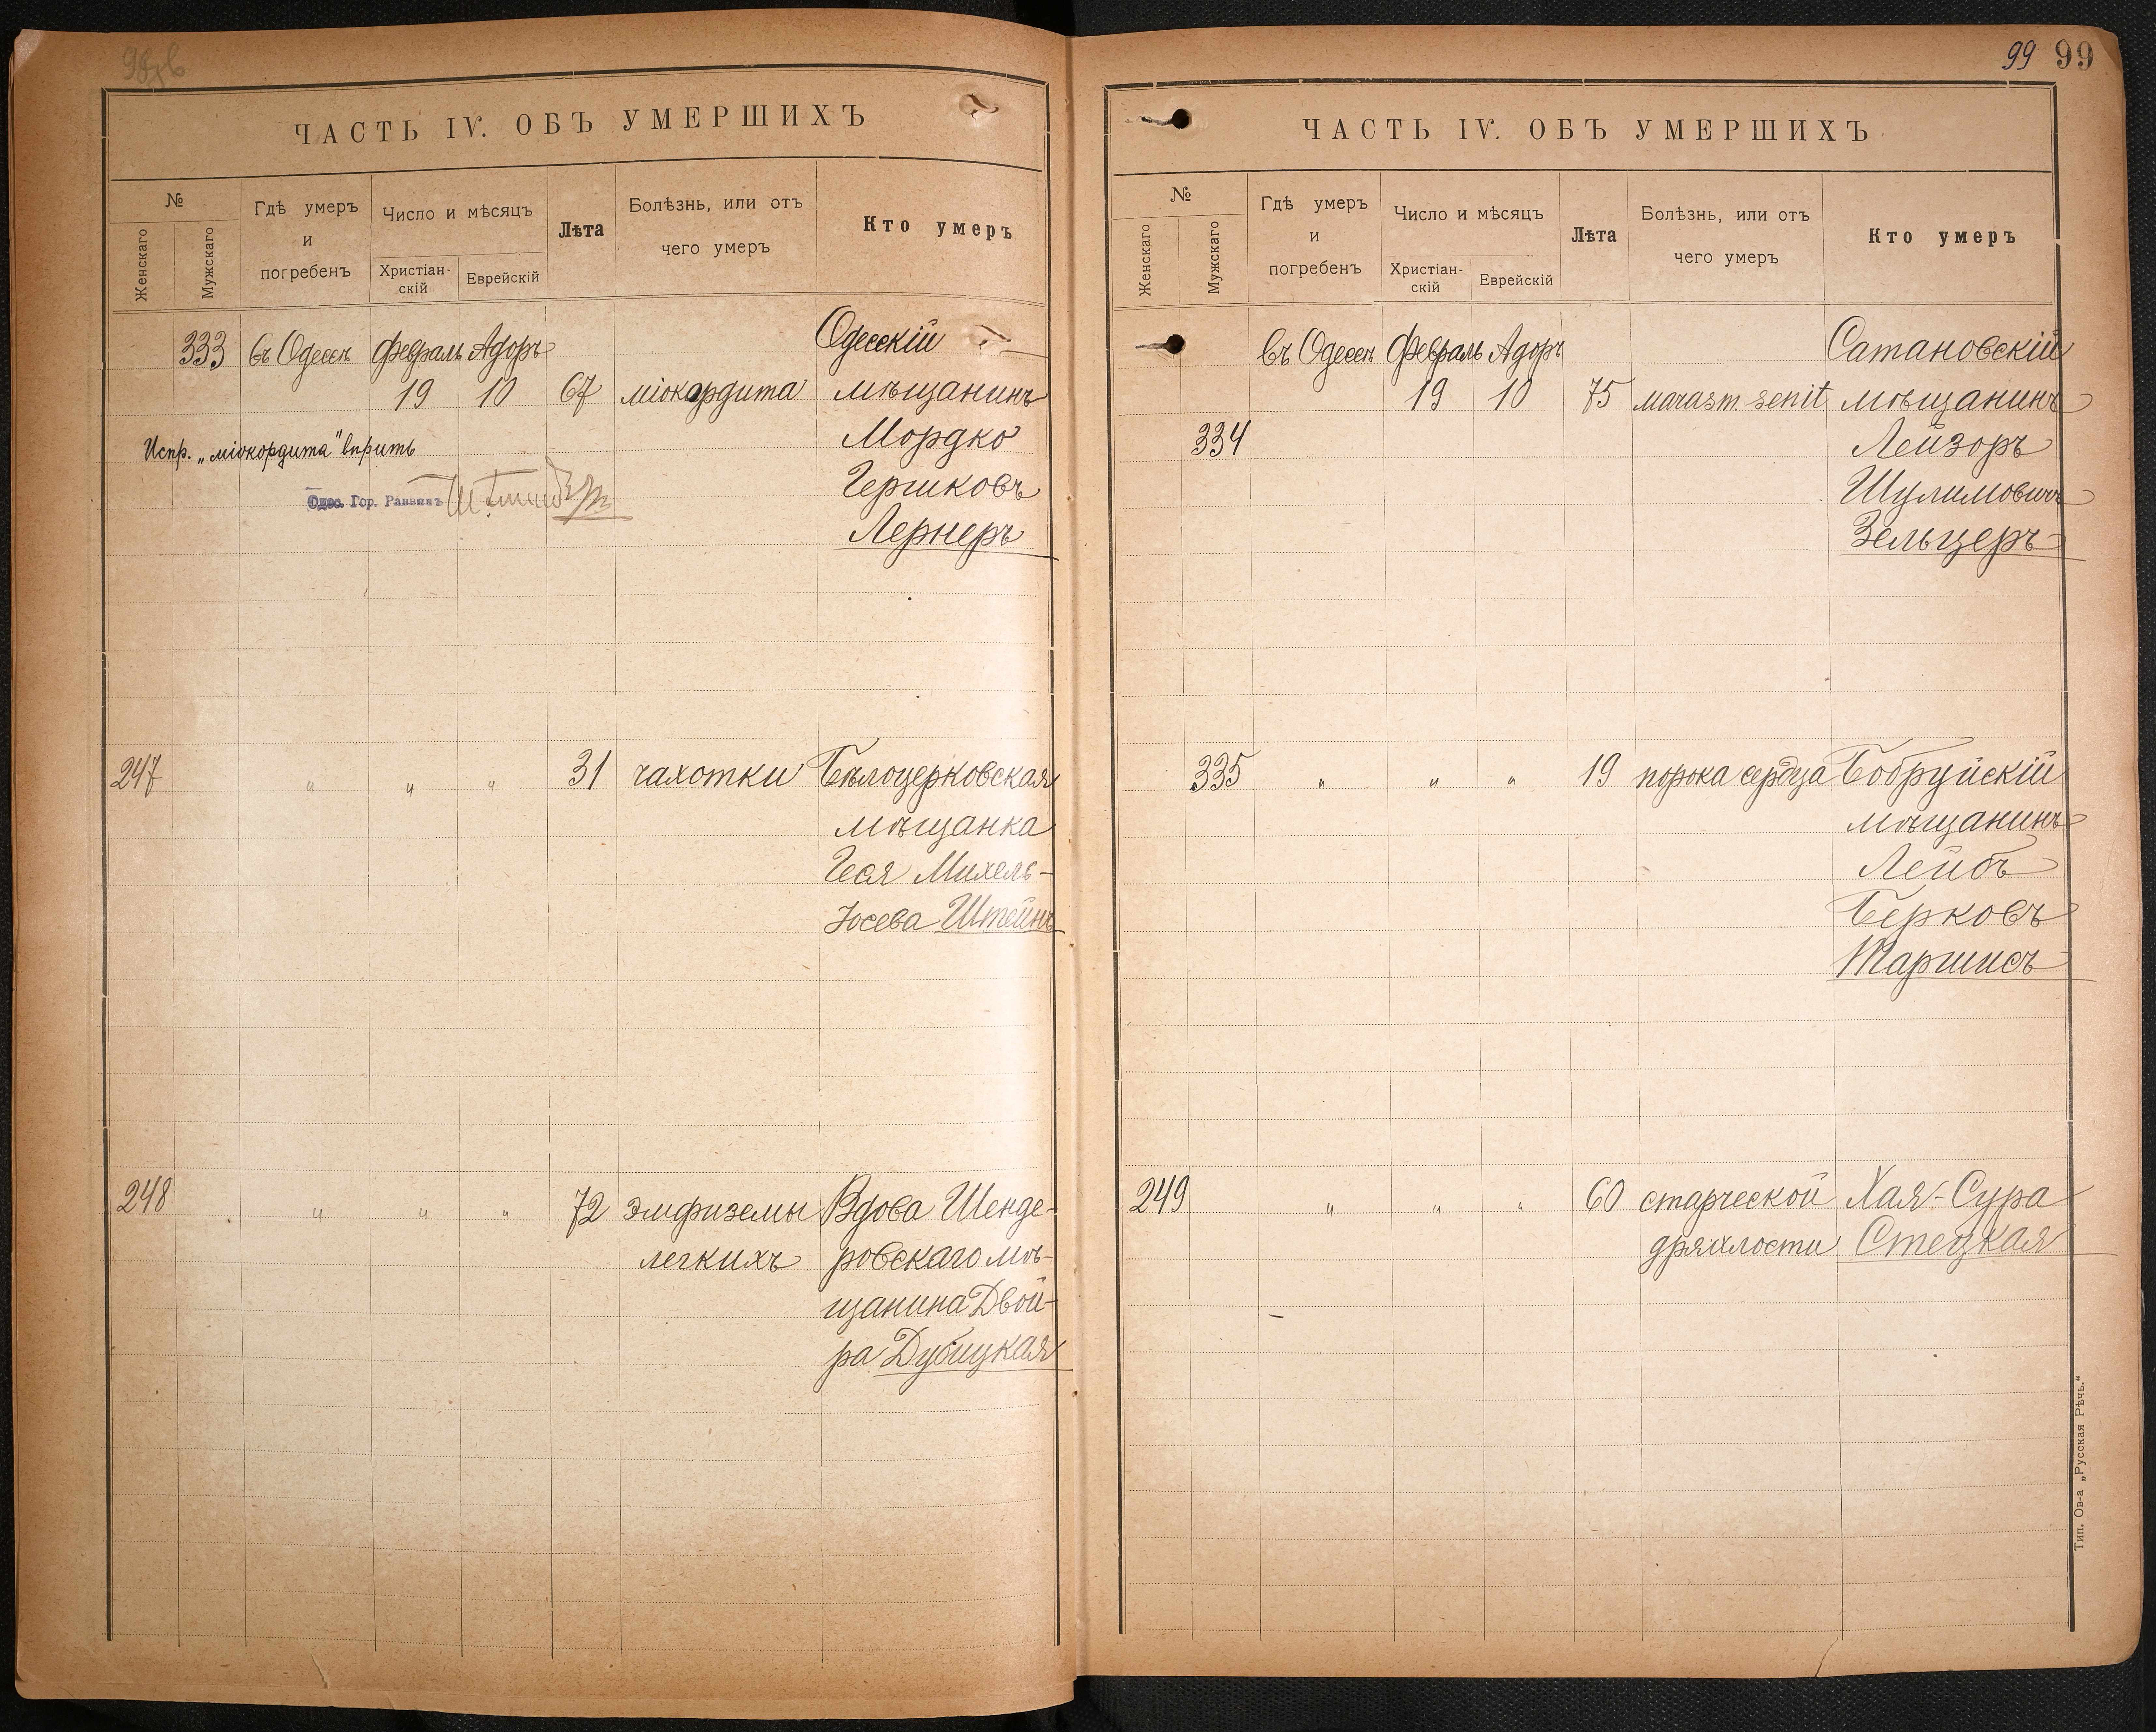 ЧАСТЬ IV. ОБЪ УМЕРШИХЪ
№
Женскаго
Мужскаго
Гдѣ умеръ
и
погребенъ
Число и мѣсяцъ
Христіан-
скій
Еврейскій
Лѣта
Болѣзнь, или отъ
чего умеръ
Кто умеръ
333 въ Одессѣ Февраль Адоръ Одесскій
19 10 67 міокордита мѣщанинъ
Испр. „міокордита" вѣрить Мордко
Одес. Гор. Раввинъ Гершковъ
Лернеръ
247 " " " 31 чахотки Бѣлоцерковская
мѣщанка
Геся Михель-
Іосева Штейнъ
248 " " " 72 эмфиземы Вдова Шенде-
легкихъ ровскаго мѣ-
щанина Двой-
ра Дубицкая
99 99
ЧАСТЬ IV. ОБЪ УМЕРШИХЪ
№
Женскаго
Мужскаго
Гдѣ умеръ
и
погребенъ
Число и мѣсяцъ
Христіан-
скій
Еврейскій
Лѣта
Болѣзнь, или отъ
чего умеръ
Кто умеръ
въ Одессѣ Февраль Адоръ Сатановскій
19 10 75 marasm. senil. мѣщанинъ
334 Лейзоръ
Шулимовичъ
Зельцеръ
335 " " " 19 порока сердца Бобруйскій
мѣщанинъ
Лейбъ
Берковъ
Таршисъ
249 " " " 60 старческой Хая-Сура
дряхлости Стецкая
Тип. Ов-а „Русская Рѣчь."